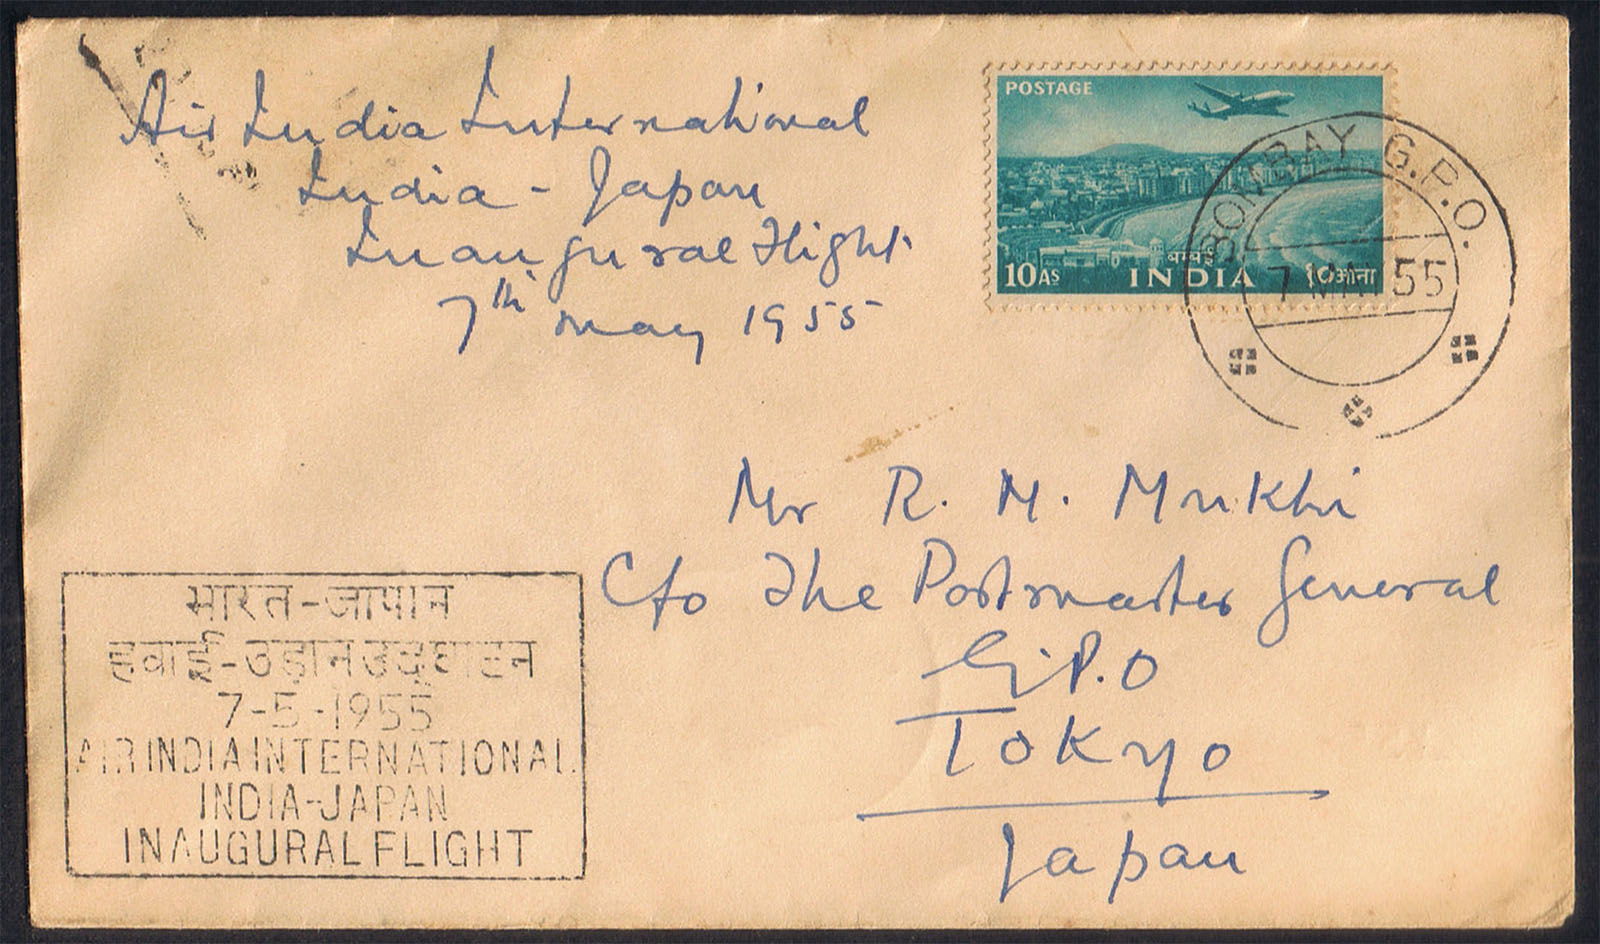 Air India International
India - Japan
Inaugural Flight
7th May 1955
POSTAGE
बम्बई
10 AS INDIA १० आना
BOMBAY G.P.O.
7 MAY 55
Mr R. M. Mukhi
C/o The Postmaster General
G.P.O
Tokyo
Japan
भारत-जापान
हवाई-उड़ान उद्घाटन
7-5-1955
AIR INDIA INTERNATIONAL
INDIA-JAPAN
INAUGURAL FLIGHT